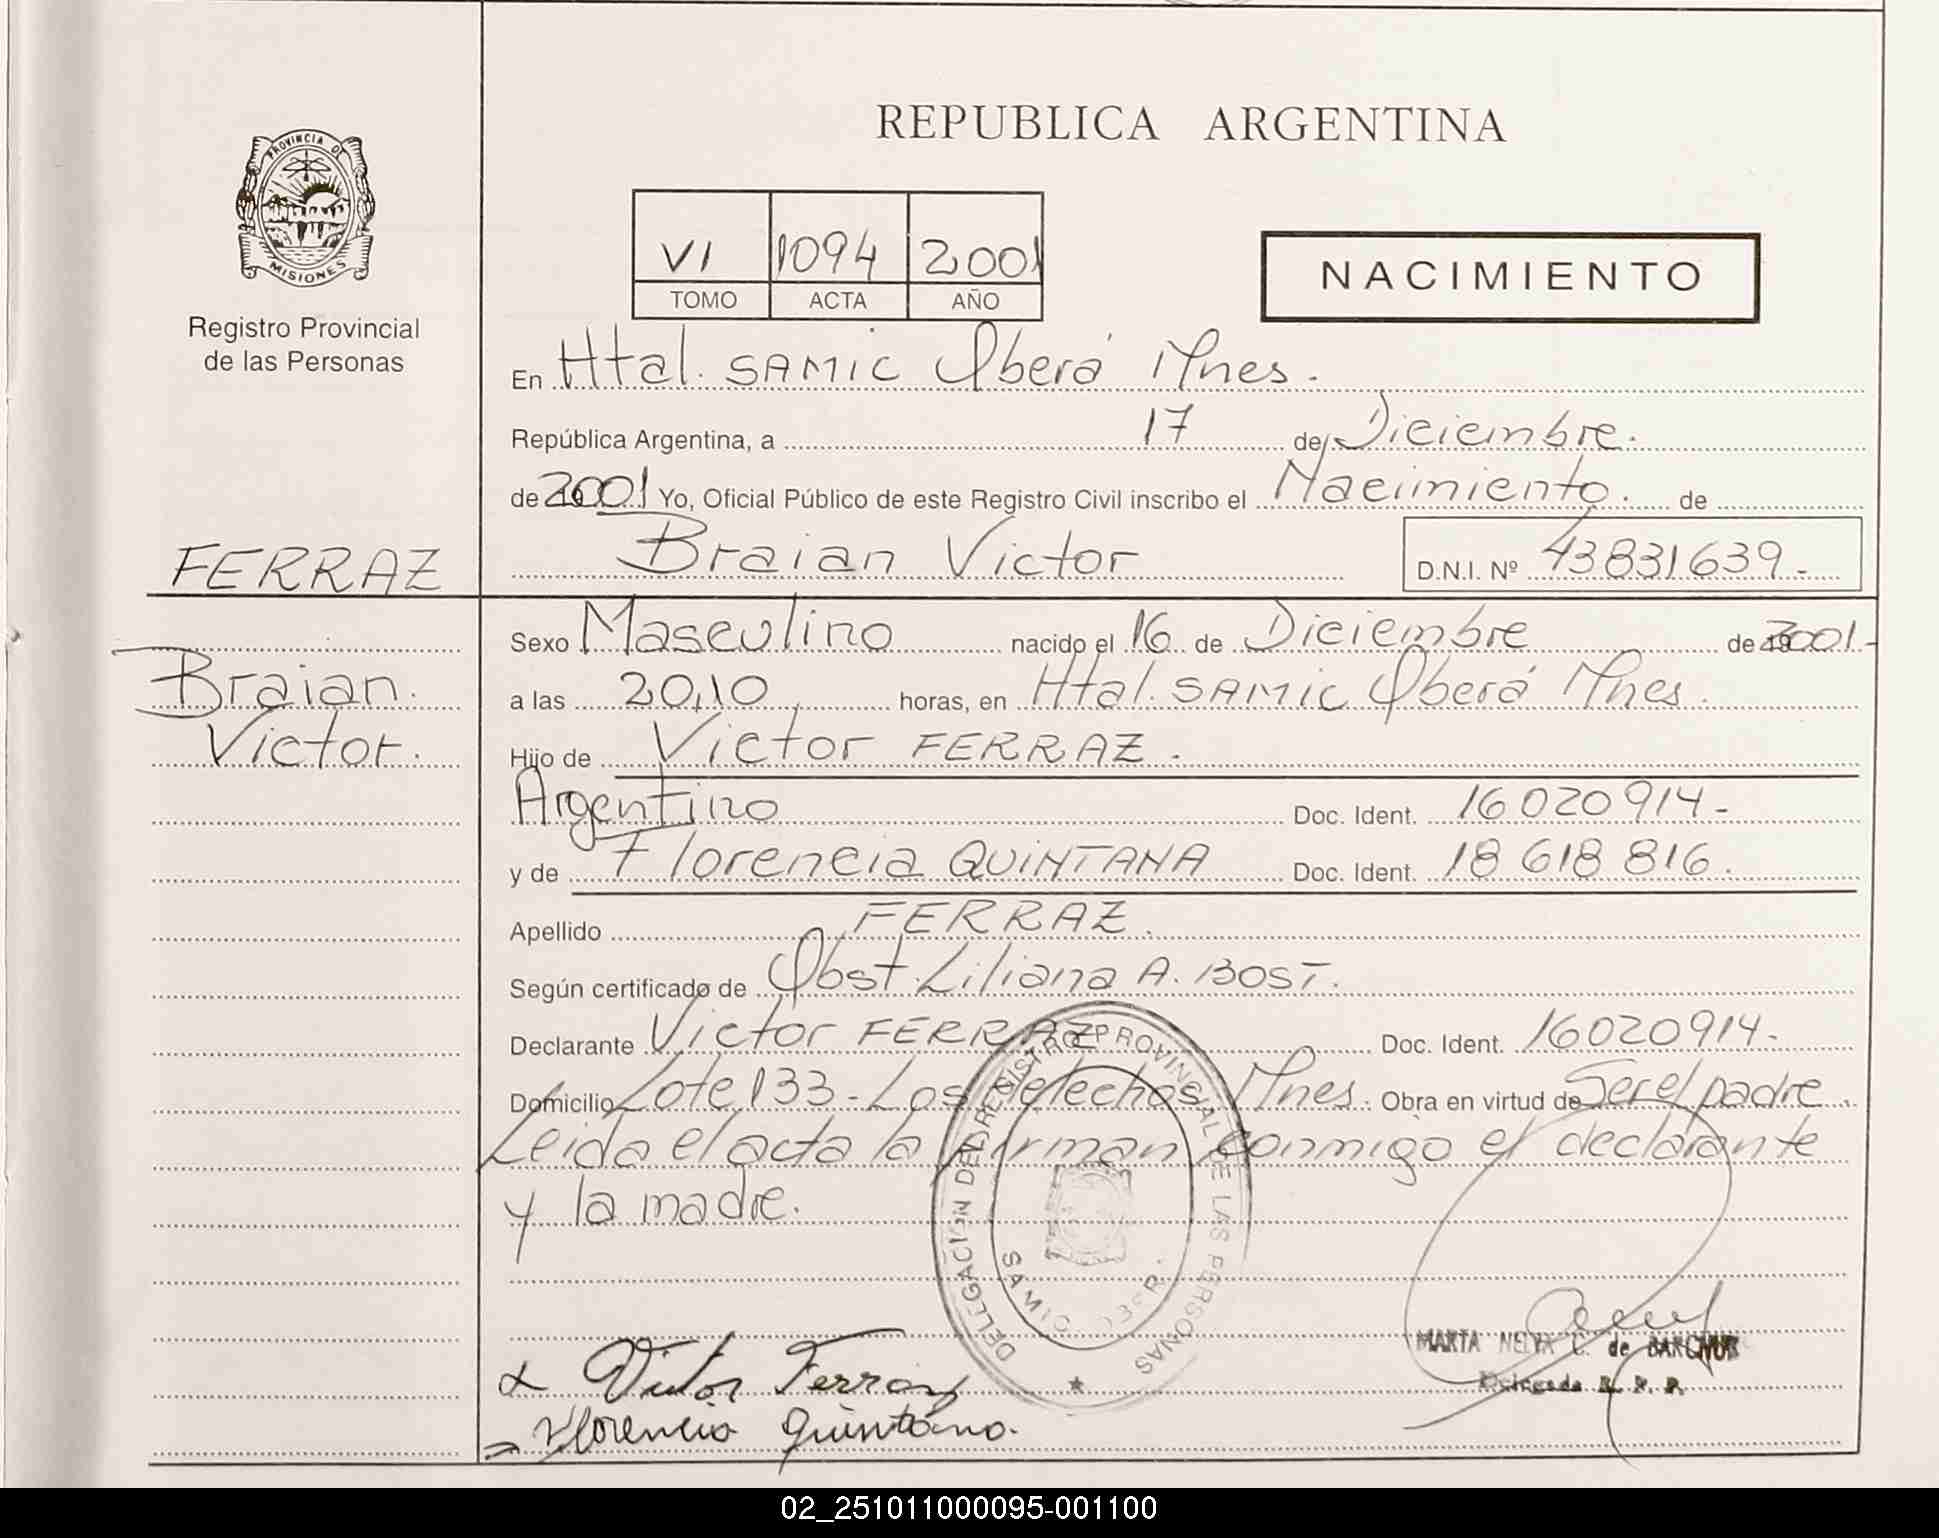 REPUBLICA ARGENTINA
PROVINCIA DE
MISIONES
Registro Provincial
de las Personas
VI 1094 2001
TOMO ACTA AÑO
NACIMIENTO
En Htal. SAMIC Oberá Mnes.
República Argentina, a 17 de Diciembre.
de 2001 Yo, Oficial Público de este Registro Civil inscribo el Nacimiento. de
FERRAZ Braian Victor D.N.I. Nº 43831639.-
Sexo Masculino nacido el 16 de Diciembre de 2001.-
Braian. a las 20,10 horas, en Htal. SAMIC Oberá Mnes.
Victor. Hijo de Victor FERRAZ.
Argentino Doc. Ident. 16 020 914-
y de Florencia QUINTANA Doc. Ident. 18 618 816.
Apellido FERRAZ.
Según certificado de Obst. Liliana A. BOST.
Declarante Victor FERRAZ Doc. Ident. 16020914-
Domicilio Lote 133 - Los Helechos Mnes. Obra en virtud de Ser el padre.
Leida el acta la firman conmigo el declarante
y la madre.
DELEGACIÓN DEL REGISTRO PROVINCIAL DE LAS PERSONAS
SAMIC
Victor Ferraz
Florencia Quintana.
MARTA NELVA C. de
Delegada R. P. P.
02_251011000095-001100